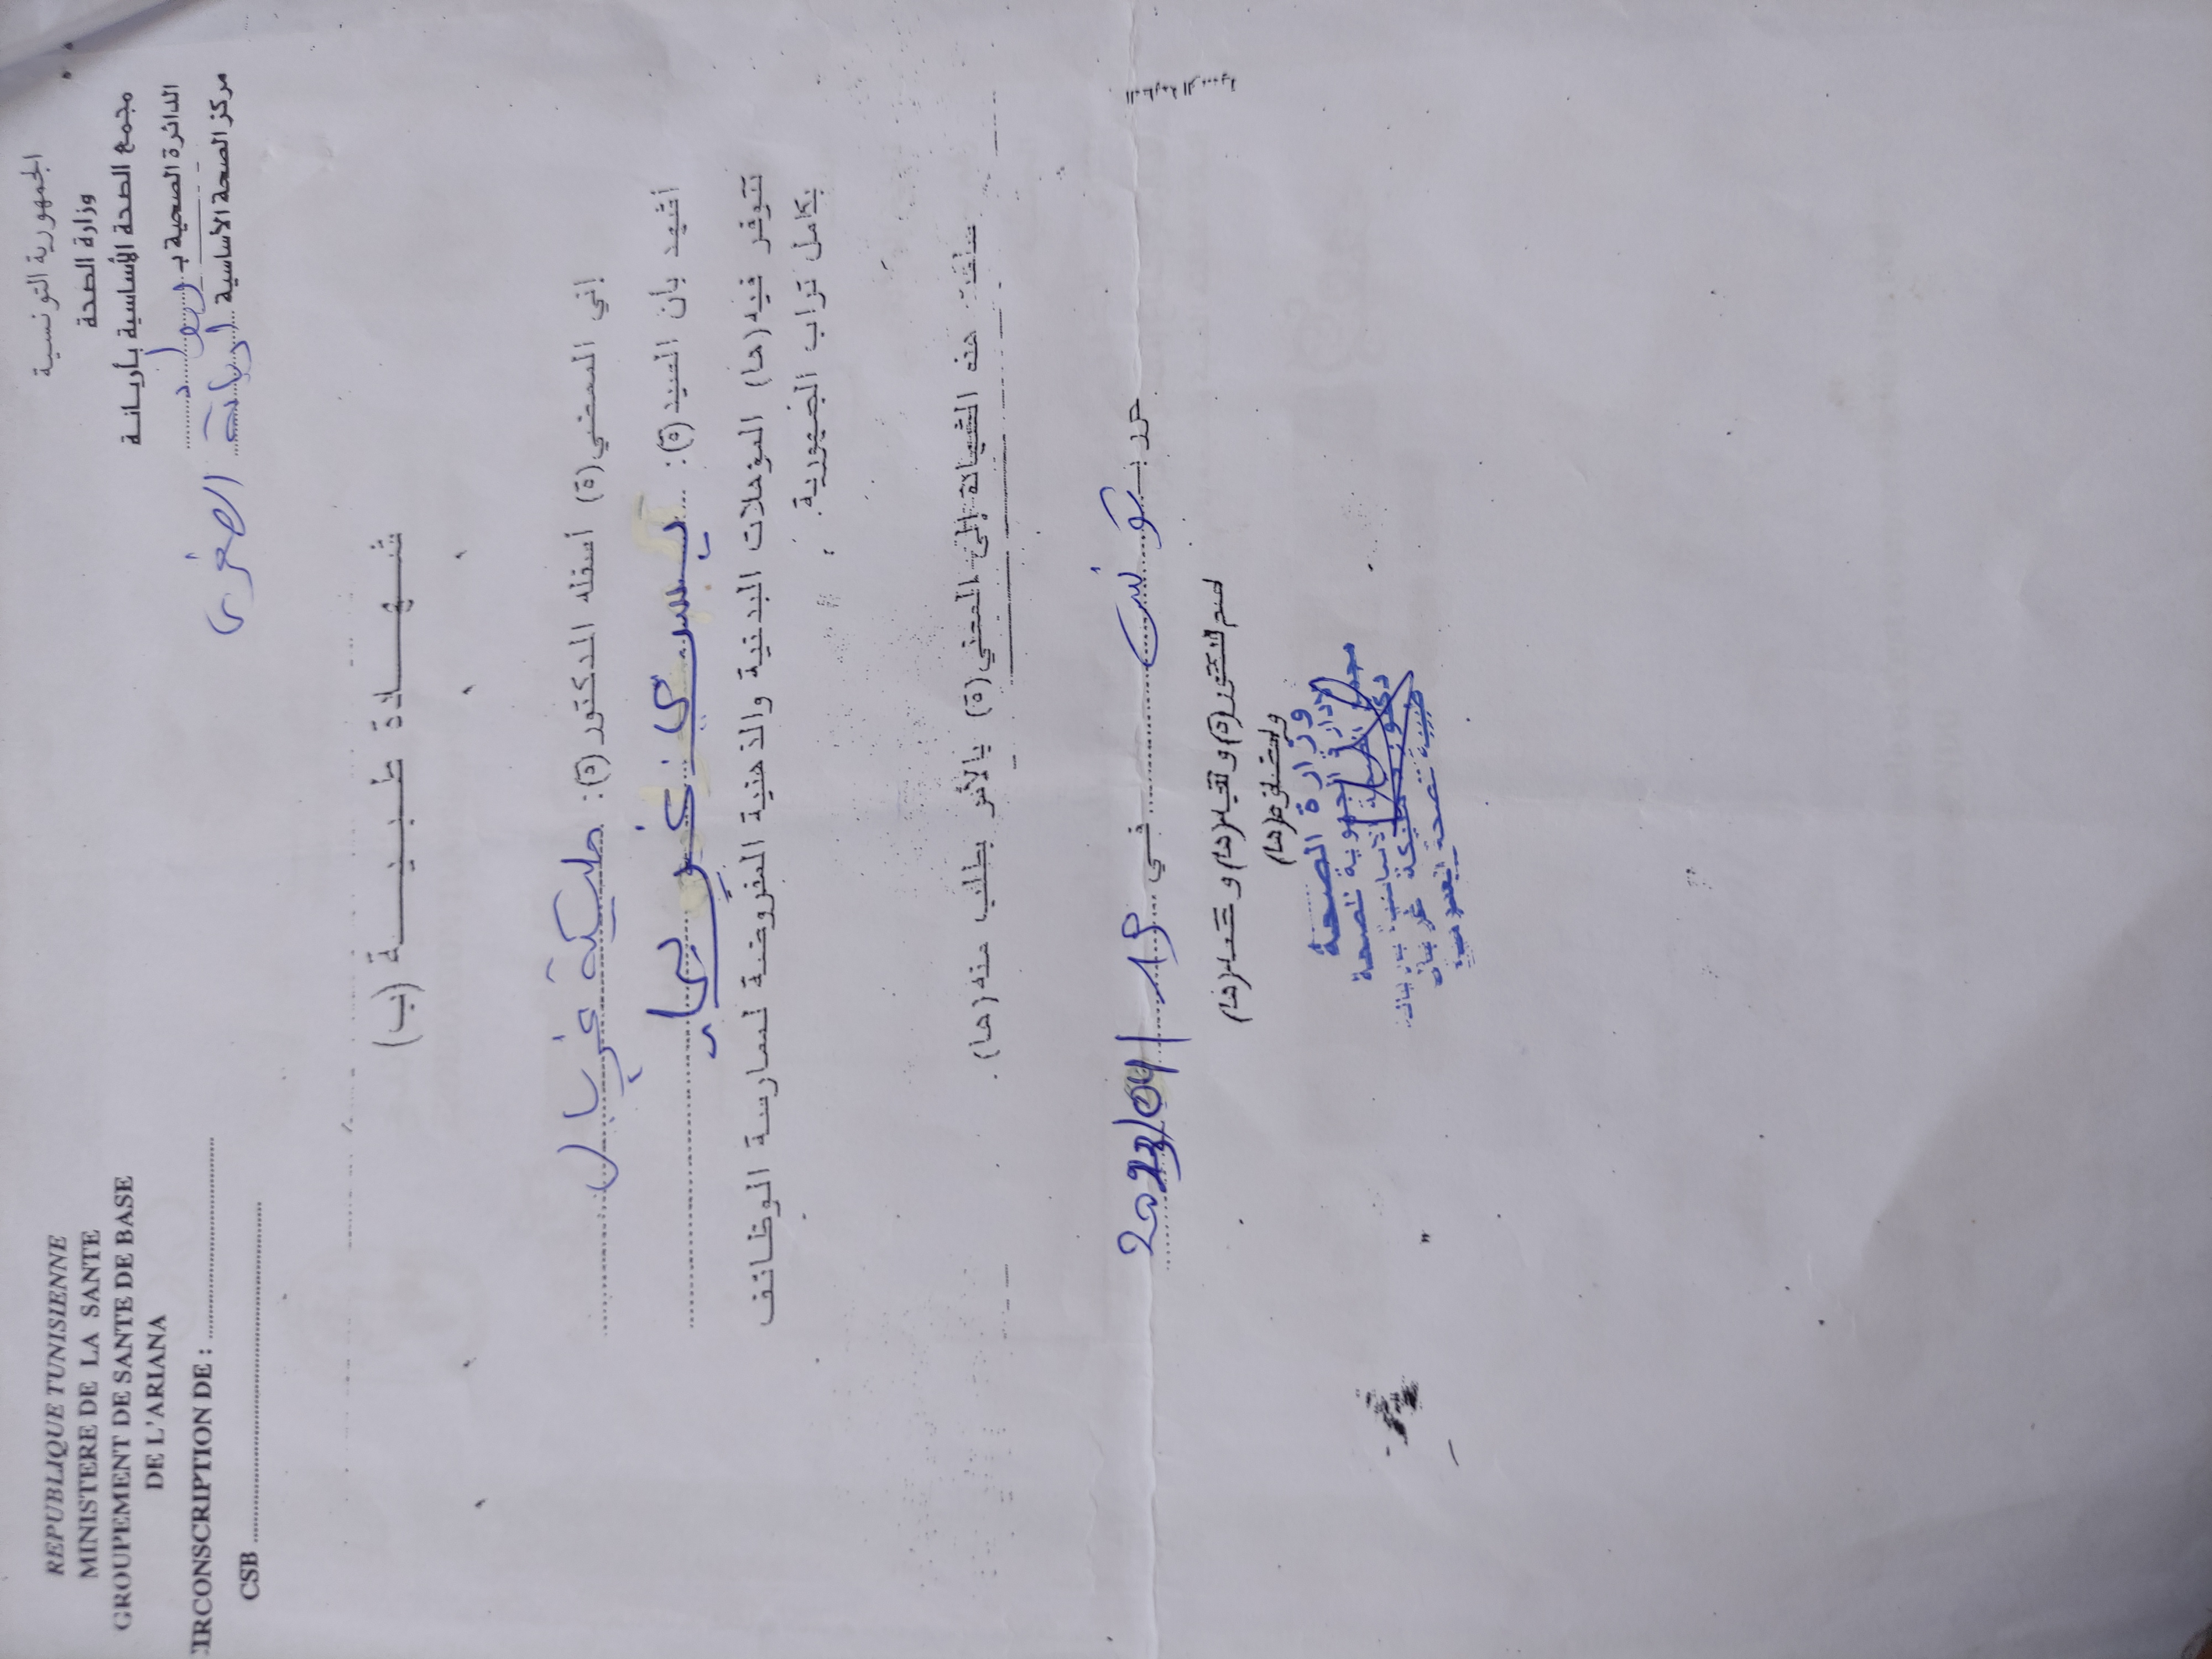 REPUBLIQUE TUNISIENNE
MINISTERE DE LA SANTE
GROUPEMENT DE SANTE DE BASE
DE L'ARIANA
CIRCONSCRIPTION DE : ....................
CSB ....................
الجمهورية التونسية
وزارة الصحة
مجمع الصحة الأساسية بأريانة
الدائرة الصحية بـ رواد
مركز الصحة الأساسية أريانة الصغرى
شهـــادة طبيـــة (ب)
إني الممضي(ة) أسفله الدكتور(ة): مليكة غربال
أشهد بأن السيد(ة): يسرى
تتوفر فيه(ها) المؤهلات البدنية والذهنية المفروضة لممارسة الوظائف
بكامل تراب الجمهورية.
سلمت هذه الشهادة إلى المعني(ة) بالأمر بطلب منه(ها).
حرر بـ تونس في 19/04/2023
وزارة الصحة
الإدارة الجهوية للصحة
مجمع الصحة الأساسية بأريانة